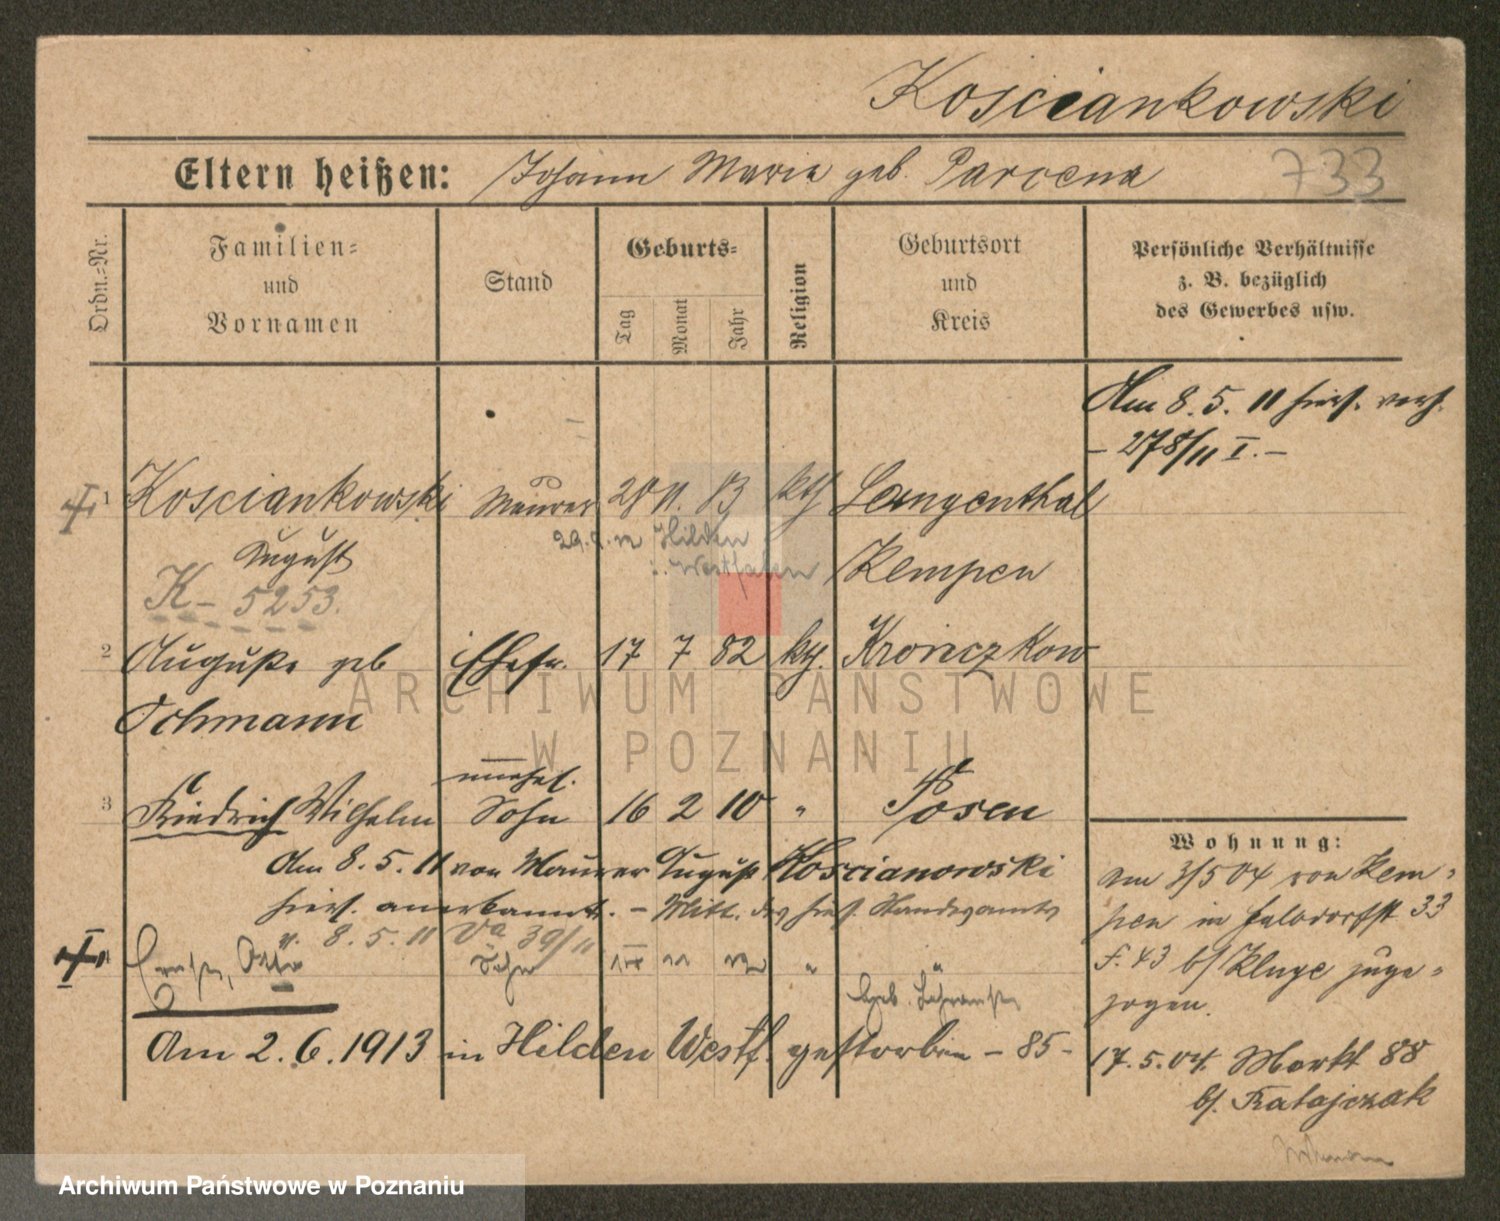 Kosciankowski
Eltern heißen: Johann Maria geb. Parcena
733
Ordn.=Nr.
Familien=
und
Vornamen
Stand
Geburts=
Tag
Monat
Jahr
Religion
Geburtsort
und
Kreis
Persönliche Verhältnisse
z. B. bezüglich
des Gewerbes usw.
Am 8. 5. 11 hies. verh.
– 278/11 I. –
1 Kosciankowski Maurer 11. 83 kth Langenthal
29. 9. 12 Hilden
August Kempen
Westfalen
K – 5253.
2 Auguste geb Ehefr. 17 7 82 kth. Kroniczkow
Ochmann
unehel.
3 Friedrich Wilhelm Sohn 16 2 10 " Posen
Am 8. 5. 11 von Maurer August Koscianowski
hies. anerkannt. – Mitt. des hies. Standesamts
v. 8. 5. 11 Va 39/11
Sohn " "
geb.
Am 2. 6. 1913 in Hilden Westf. gestorben – 85 –
Wohnung:
Am 3/5 04 von Kem=
pen in 33
b/ Kluge zuge=
zogen.
17. 5. 04. Markt 88
b/. Ratajczak
ARCHIWUM PAŃSTWOWE
W POZNANIU
Archiwum Państwowe w Poznaniu